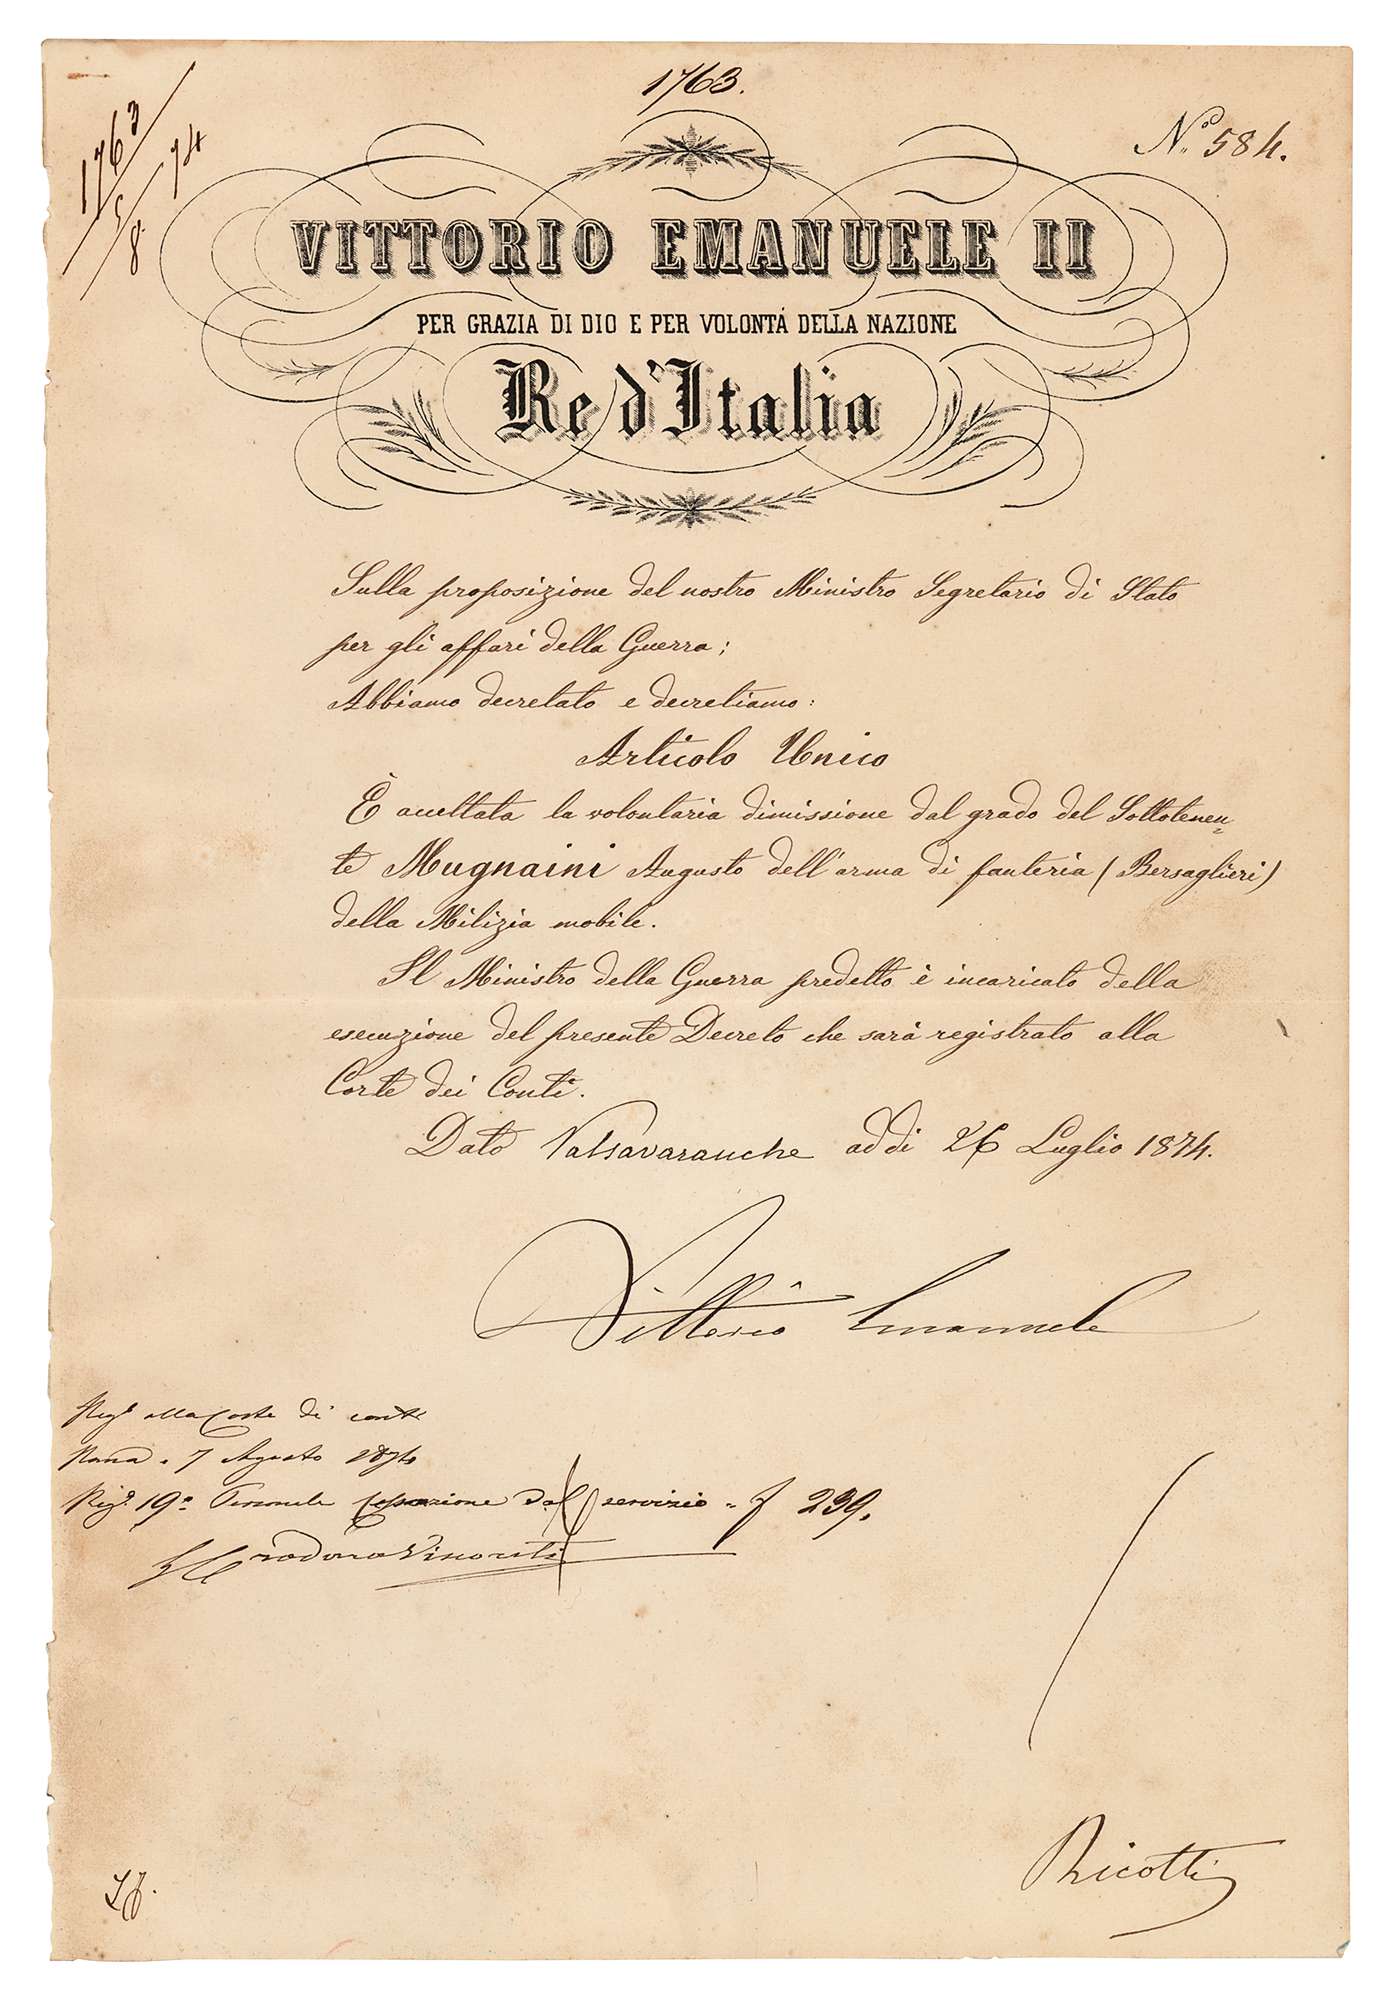 1763.
1763
5
8
74
N.º 584.
VITTORIO EMANUELE II
PER GRAZIA DI DIO E PER VOLONTÁ DELLA NAZIONE
Re d'Italia
Sulla proposizione del nostro Ministro Segretario di Stato
per gli affari della Guerra;
Abbiamo decretato e decretiamo:
Articolo Unico
È accettata la volontaria dimissione dal grado del Sottotenen=
te Mugnaini Augusto dell'arma di fanteria (Bersaglieri)
della Milizia mobile.
Il Ministro della Guerra predetto è incaricato della
esecuzione del presente Decreto che sarà registrato alla
Corte dei Conti.
Dato Valsavaranche addì 26 Luglio 1874.
Vittorio Emanuele
Regº alla Corte di conti
Roma 7 Agosto 1874
Regº 19º Personale Cessazione dal servizio f 239.
Ricotti